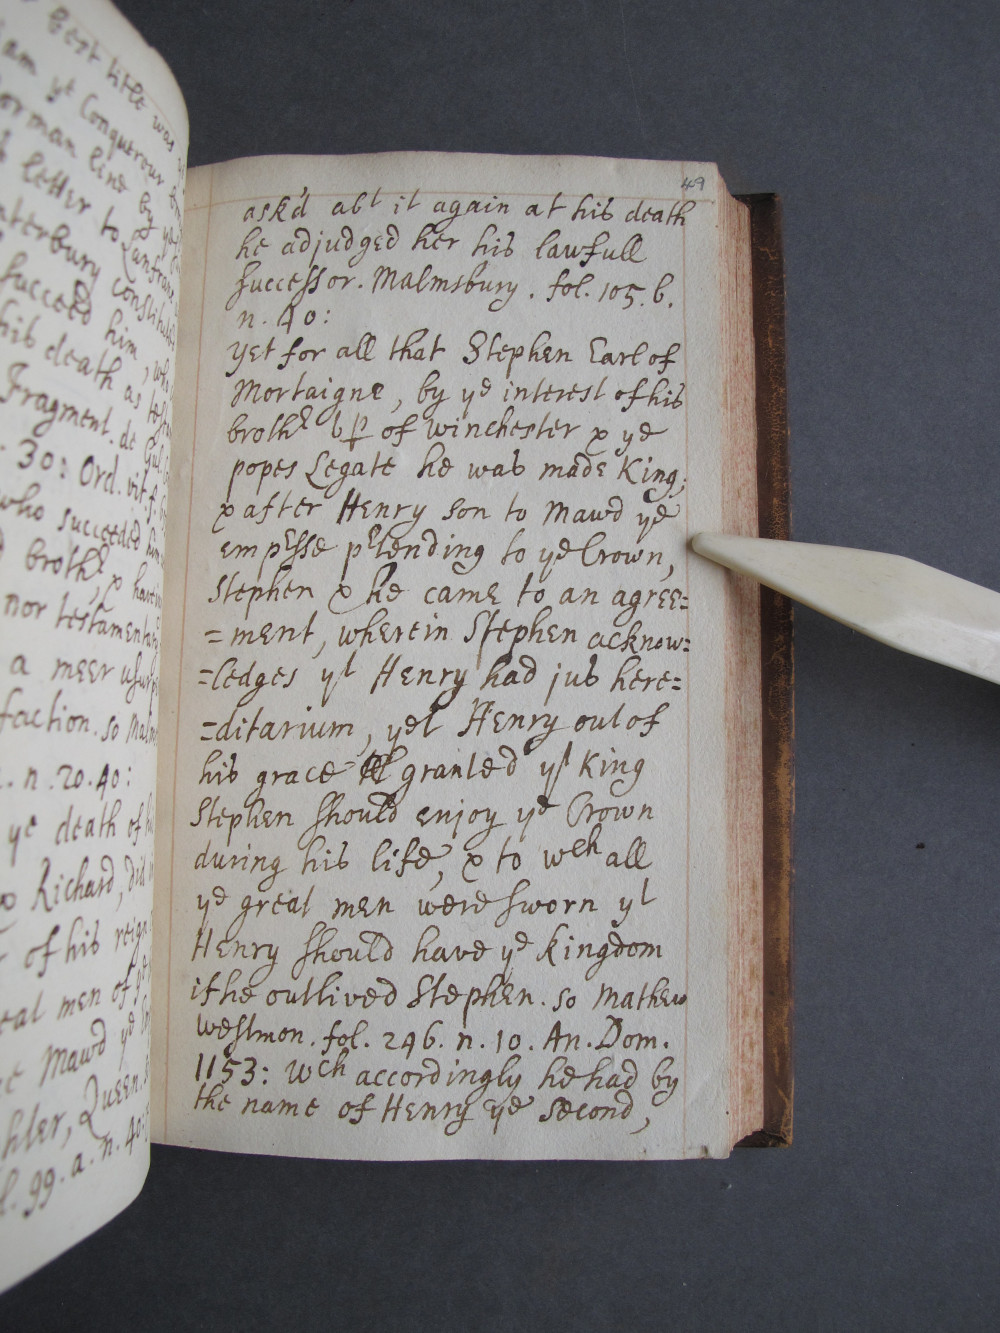 Best title was
am yᵉ Conquerour
orman line by
letter to Lanfranc
nterbury constitutes
succeed him, who
his death as
Fragment. de Gul.
30: Ord. vit. f.
who succeeded him
brothʳ, & have
nor testamentary
a meer usurp
faction. so Malm
. n. 20. 40:
yᵉ death of his
& Richard, did
of his reign
eat men of yᵉ
Mawd yᵉ
hter, Queen.
l. 99. a. n. 40:
49
ask'd abᵗ it again at his death
he adjudged her his lawfull
successor. Malmsbury. fol. 105. b.
n. 40:
yet for all that Stephen Earl of
Mortaigne, by yᵉ interest of his
brothʳ bᵖ of winchester & yᵉ
popes Legate he was made King;
& after Henry son to Mawd yᵉ
empʳesse pʳtending to yᵉ Crown,
Stephen & he came to an agree=
=ment, wherein Stephen acknow=
=ledges yᵗ Henry had jus here=
=ditarium, yet Henry out of
his grace granted yᵗ King
Stephen should enjoy yᵉ Crown
during his life, & to wᶜʰ all
yᵉ great men were sworn yᵗ
Henry should have yᵉ kingdom
if he outlived Stephen. so Mathew
westmon. fol. 246. n. 10. An. Dom.
1153: wᶜʰ accordingly he had by
the name of Henry yᵉ second,